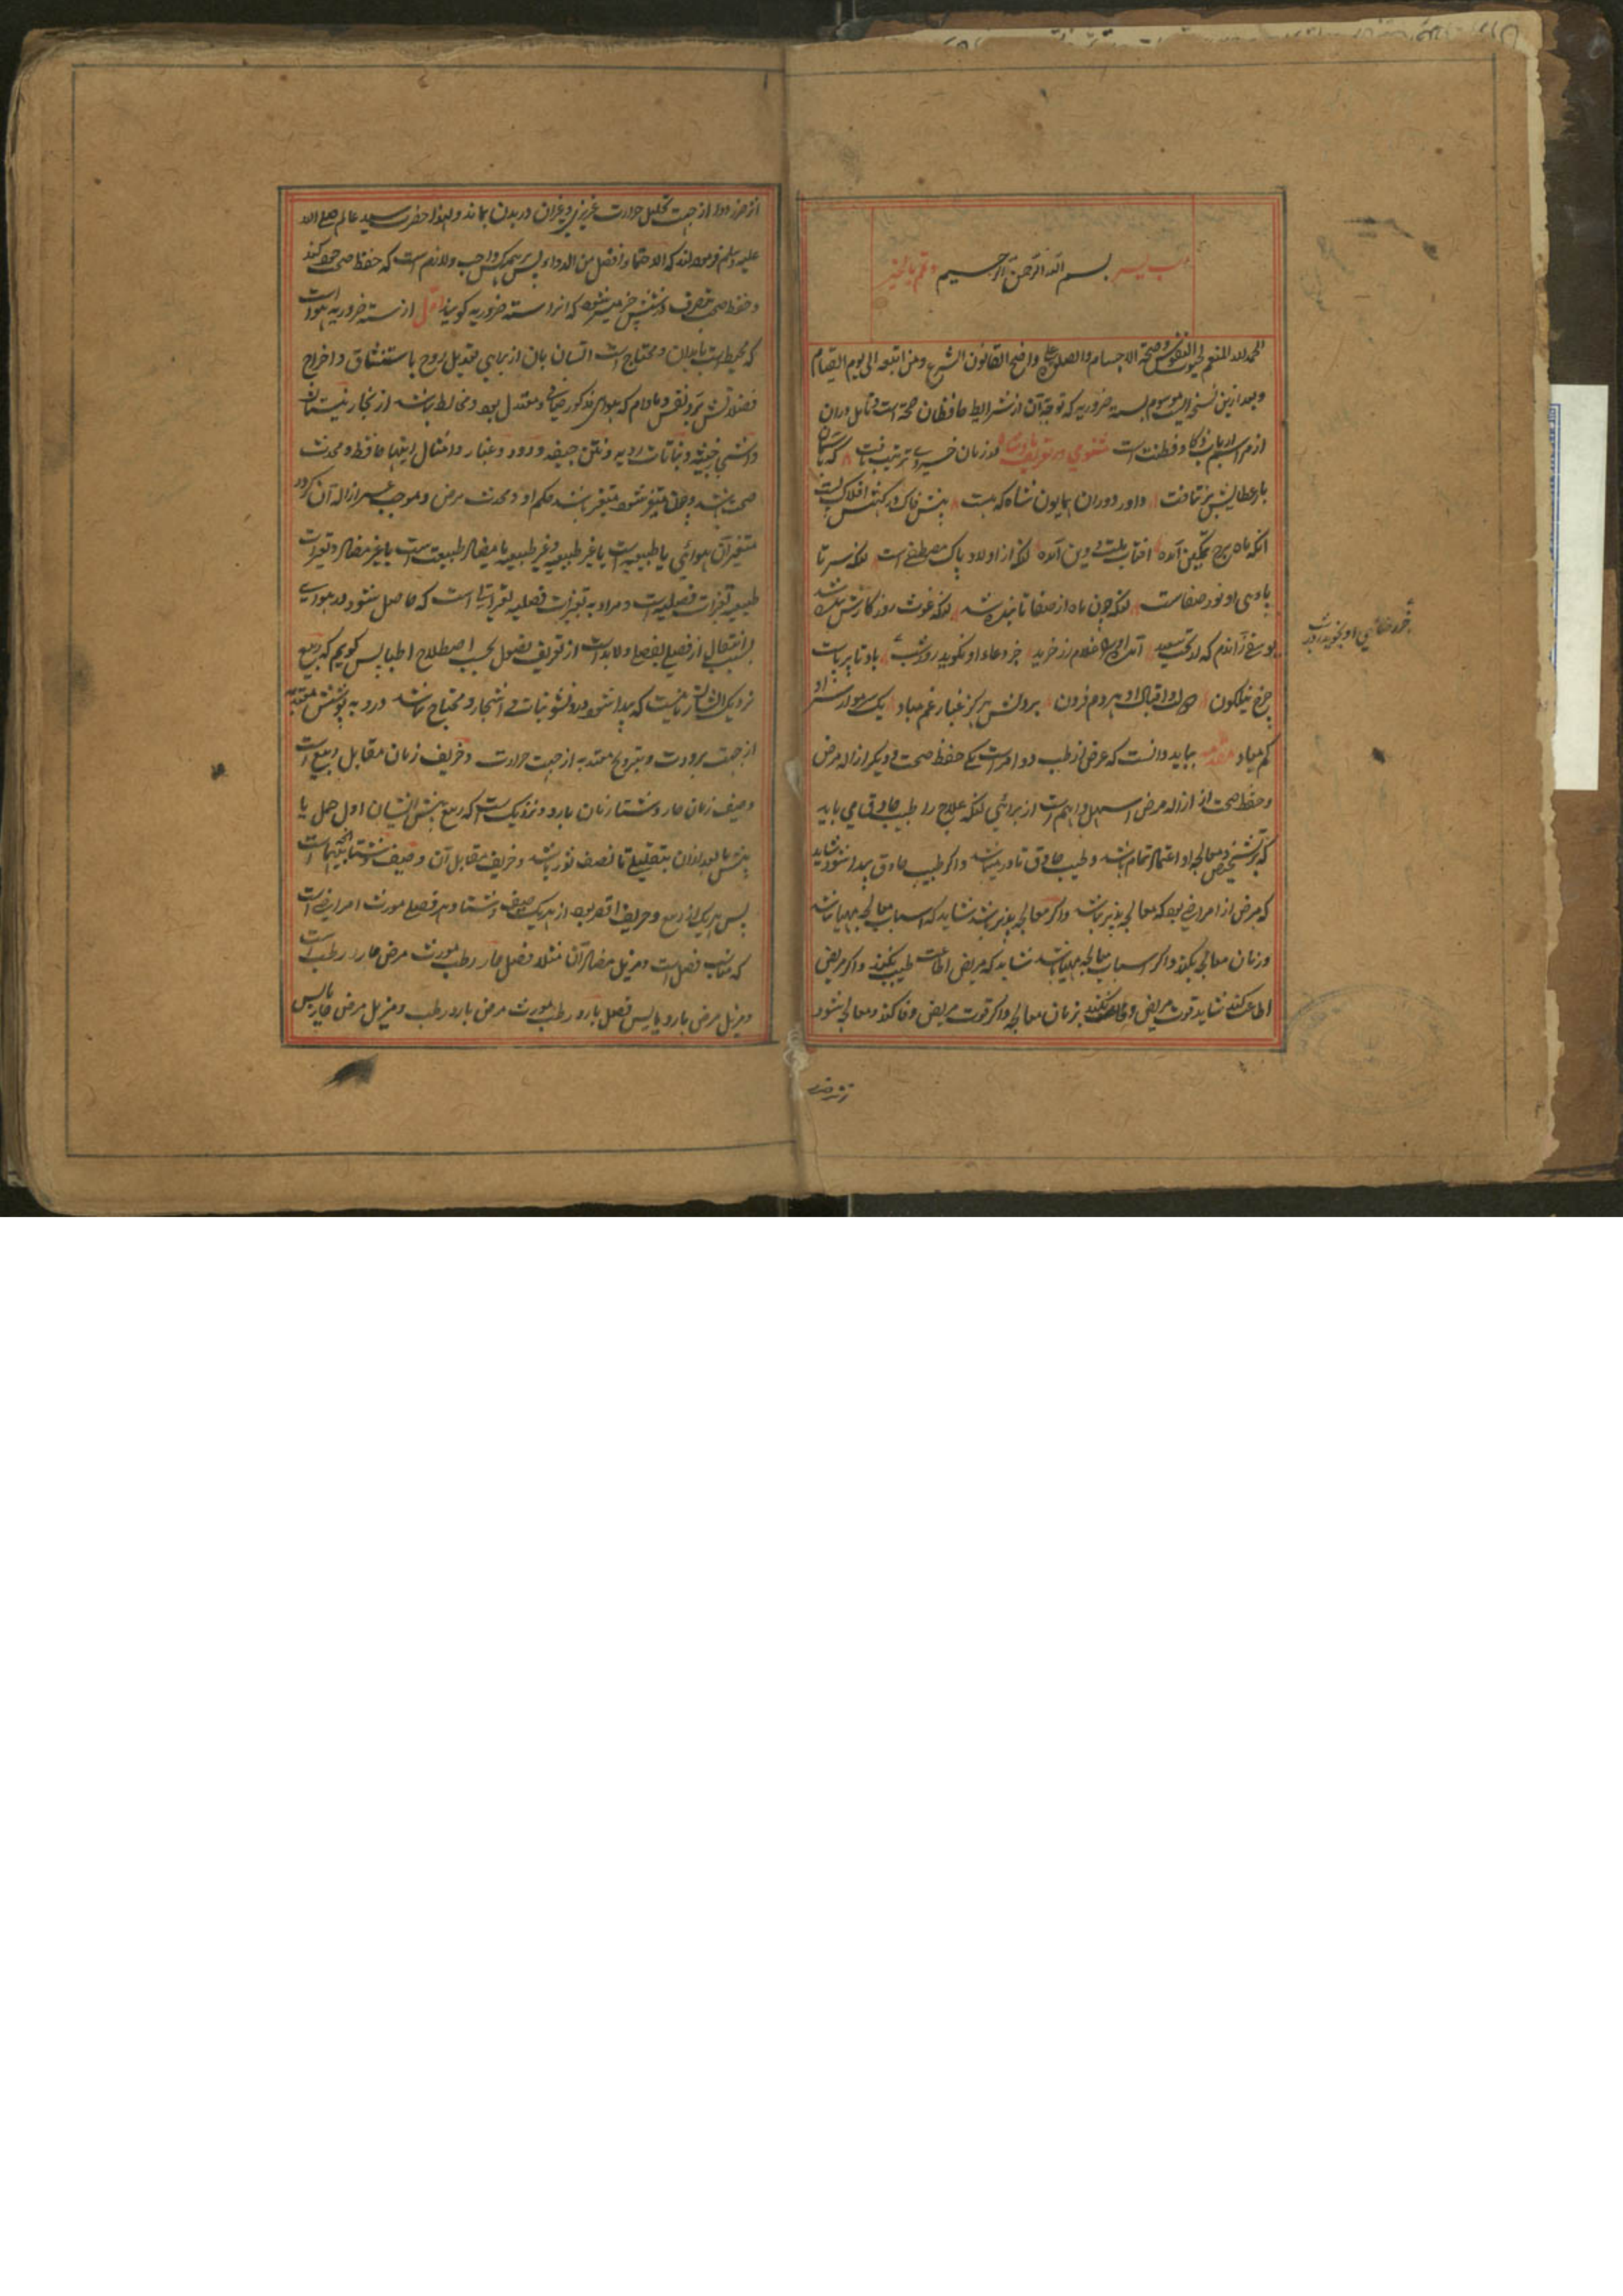 رب یسر بسم الله الرحمن الرحیم و تمم بالخیر
الحمد لله المنعم بحیوة النفوس و صحة الاجسام والصلوة علی واضع القانون الشرع ومن اتبعه الی یوم القیام
وبعد ازین نسخه ایست موسوم بسته ضروریه که توجه آن از شرایط حافظان صحة است و تامل در آن
از مراسم ارباب ذکا و فطنت است مثنوی در تعریف پادشاه در زبان خسروی ترتیب یافت که تا
بار عطایش بر نتافت داور دوران همایون شاه که هست پیش خاک درکهش افلاک پست
آنکه ماه برج تمکین آمده آفتاب ملت و دین آمده آنکه از اولاد پاک مصطفی است آنکه سر تا
پای او نور صفاست آنکه چون ماه از صفا تابنده شد آنکه غوث روزگارش بنده شد
یوسفی زاندم که از بخت سعید آمد او را غلام زر خرید جز دعاء او نگوید روز و شب باد تا بر پاست
چرخ نیلگون جاه و اقبال او هر دم فزون بر دلش هرگز غبار غم مباد یک سر مو از سر او
کم مباد مقدمه بباید دانست که غرض از طب دو امر است یکی حفظ صحت و دیگر ازاله مرض
و حفظ صحت از ازاله مرض اسهل و اهم است از برای آنکه علاج را طبیب حاذق می باید
که بر تشخیص و معالجه او اعتماد تمام باشد و طبیب حاذق نادر میباشد و اگر طبیب حاذق پیدا شود شاید
که مرض از امراضی بود که معالجه پذیر نباشد و اگر معالجه پذیر باشد شاید که اسباب معالجه مهیا نباشد
در زمان معالجه نکند و اگر اسباب معالجه مهیا باشد شاید که مریض اطاعت طبیب نکند و اگر مریض
اطاعت کند شاید قوت مریض وفا نکند بزمان معالجه و اگر قوت مریض وفا کند و معالجه شود
از ضرر دوا از جهت تحلیل حرارت غریزی و غیر آن در بدن بماند ولهذا حضرت سید عالم صلی الله
علیه وسلم فرموده اند که الاحتماء افضل من الدواء پس بر همه کس واجب ولازم است که حفظ صحت خود کند
و حفظ صحت بتصرف در شش چیز میسر شود که آنرا سته ضروریه گویند اول از سته ضروریه هوا است
که محیط است بابدان و محتاج است انسان بآن از برای تعدیل روح باستنشاق و اخراج
فضلاتش برد نفس و مادام که هوای مذکور صافی و معتدل بود و مخالط نباشد از بخار نیستان
و اشجار خبیثه و نباتات ردیه و نتن جیفه و دود و غبار و امثال اینها حافظ و محدث
صحت باشد و چون متغیر شود متغیر باشد حکم او و محدث مرض و موجب عسر ازاله آن گردد
متغیر آن هوائی یا طبیعیه است یا غیر طبیعیه و غیر طبیعیه یا مضاد طبیعت است یا غیر مضاد و تغیرات
طبیعیه تغیرات فصلیه است و مراد به تغیرات فصلیه تغیراتی است که حاصل شود در هوای
بسبب انتقال از فصلی بفصلی ولابد است از تعریف فصول بحسب اصطلاح اطبا پس گویم که ربیع
نزدیک ایشان زمانیست که پیدا شود در و نشو نبات و اشجار و محتاج نباشد درو به پوشش معتدبه
از جهت برودت و بترویح معتدبه از جهت حرارت و خریف زمان مقابل ربیع است
و صیف زمان حار و شتا زمان بارد و نزدیک است که ربیع پیش ایشان اول حمل یا
پیش یا بعد از آن بتقلیلی تا نصف ثور باشد و خریف مقابل آن و صیف و شتا مابینهما است
پس هر یک از ربیع و خریف اقصر بود از هر یک صیف و شتا و هر فصلی مورث امراضی است
که مناسب فصل است و مزیل مضاد آن مثلا فصل حار رطب مورث مرض حار رطب است
و مزیل مرض بارد یابس فصل بارد رطب مورث مرض بارد رطب و مزیل مرض حار یابس